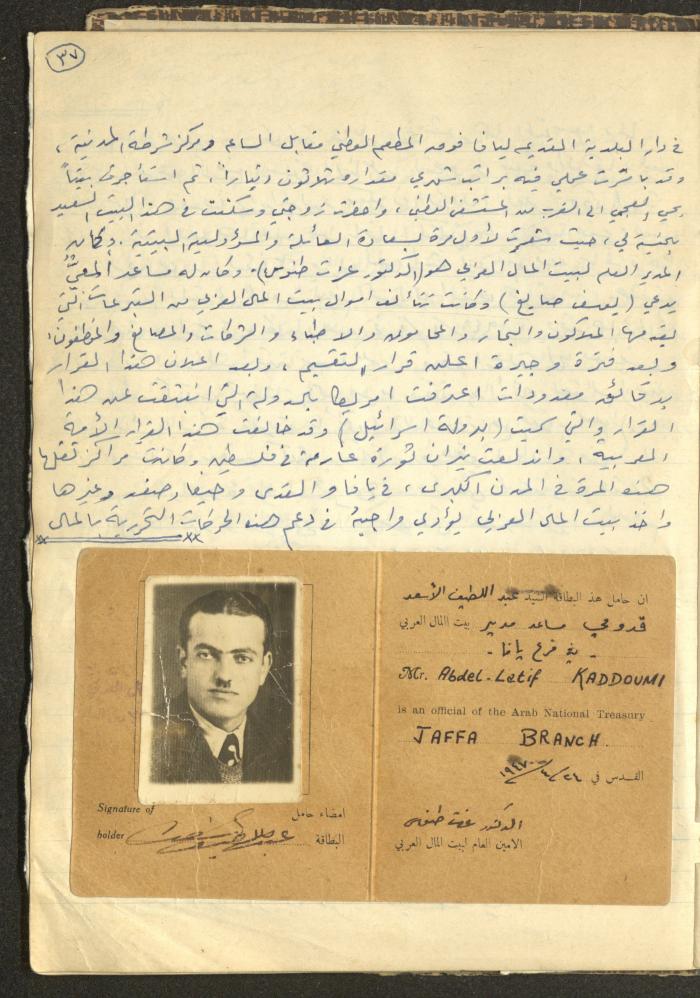 ٣٧
في دار البلدية القديمة ليافا فوق المطعم الوطني مقابل الساعة ومركز شرطة المدينة ،
وقد باشرت عملي فيه براتب شهري مقداره ثلاثون ديناراً ، ثم استأجرت بيتاً
بحي العجمي الى القرب من المستشفى الوطني ، واحضرت زوجتي وسكنت في هذا البيت السعيد
بالنسبة لي ، حيث شعرت لأول مرة بسعادة العائلة والمسؤولية البيتية . وكان
المدير العام لبيت المال العربي هو (الدكتور عزت طنوس) . وكان له مساعد
يدعى ( يوسف صايغ ) وكانت تتألف اموال بيت المال العربي من التبرعات التي
يقدمها الملاكون والتجار والمحامون والاطباء والشركات والمصانع والموظفون .
وبعد فترة وجيزة اعلن قرار التقسيم ، وبعد اعلان هذا القرار
بدقائق معدودات اعترفت امريكا بالدولة التي انبثقت عن هذا
القرار والتي سميت ( بدولة اسرائيل ) وقد خالفت هذا القرار الأمة
العربية ، واندلعت نيران ثورة عارمة في فلسطين وكانت مراكز ثقلها
هذه المرة في المدن الكبرى ، في يافا و القدس وحيفا وصفد وغيرها
واخذ بيت المال العربي يؤدي واجبه في دعم هذه الحركات التحررية بالمال
ان حامل هذه البطاقة السيد عبد اللطيف الأسعد
قدومي مساعد مدير بيت المال العربي
- في فرع يافا -
Mr. Abdel-Latif KADDOUMI
is an official of the Arab National Treasury
JAFFA BRANCH.
القدس في ٢٤/٤/١٩٤٧
الدكتور عزت طنوس
الامين العام لبيت المال العربي
Signature of
holder
امضاء حامل
البطاقة